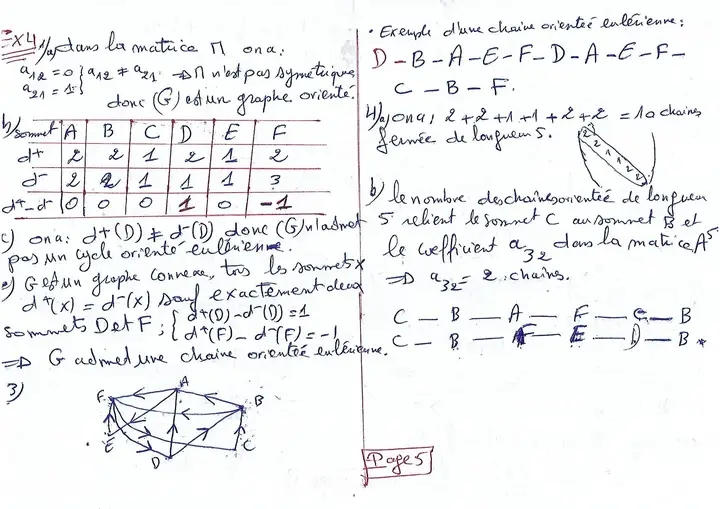 EX4 1/a) dans la matrice M on a:
a12 = 0 } a12 ≠ a21 ⇒ M n'est pas symétrique
a21 = 1
donc (G) est un graphe orienté.
b) sommet | A | B | C | D | E | F
d+ | 2 | 2 | 1 | 2 | 1 | 2
d- | 2 | 2 | 1 | 1 | 1 | 3
d+-d- | 0 | 0 | 0 | 1 | 0 | -1
c) ona: d+(D) ≠ d-(D) donc (G) n'admet
pas un cycle orienté eulérienne.
e) G est un graphe connexe, tous les sommets x
d+(x) = d-(x) sauf exactement deux
sommets D et F ; { d+(D) - d-(D) = 1
d+(F) - d-(F) = -1
⇒ G admed une chaine orienteé eulérienne.
3)
A
F
B
E
C
D
• Exemple d'une chaine orienteé eulérienne:
D - B - A - E - F - D - A - E - F -
C - B - F.
4)a) ona: 2 + 2 + 1 + 1 + 2 + 2 = 10 chaines
fermée de longueur 5.
2 2 1 1 2 2
b) le nombre des chaines orienteé de longueur
5 relient le sommet C au sommet B et
le coefficient a32 dans la matrice A^5
⇒ a32 = 2 chaines.
C — B — A — F — C — B
C — B — F — E — D — B.
Page 5